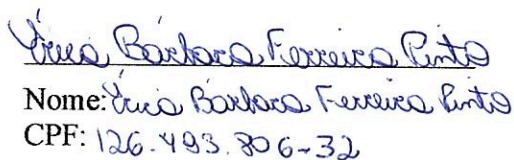 Érica Bárbara Ferreira Pinto
Nome: Érica Bárbara Ferreira Pinto
CPF: 126.493.806-32